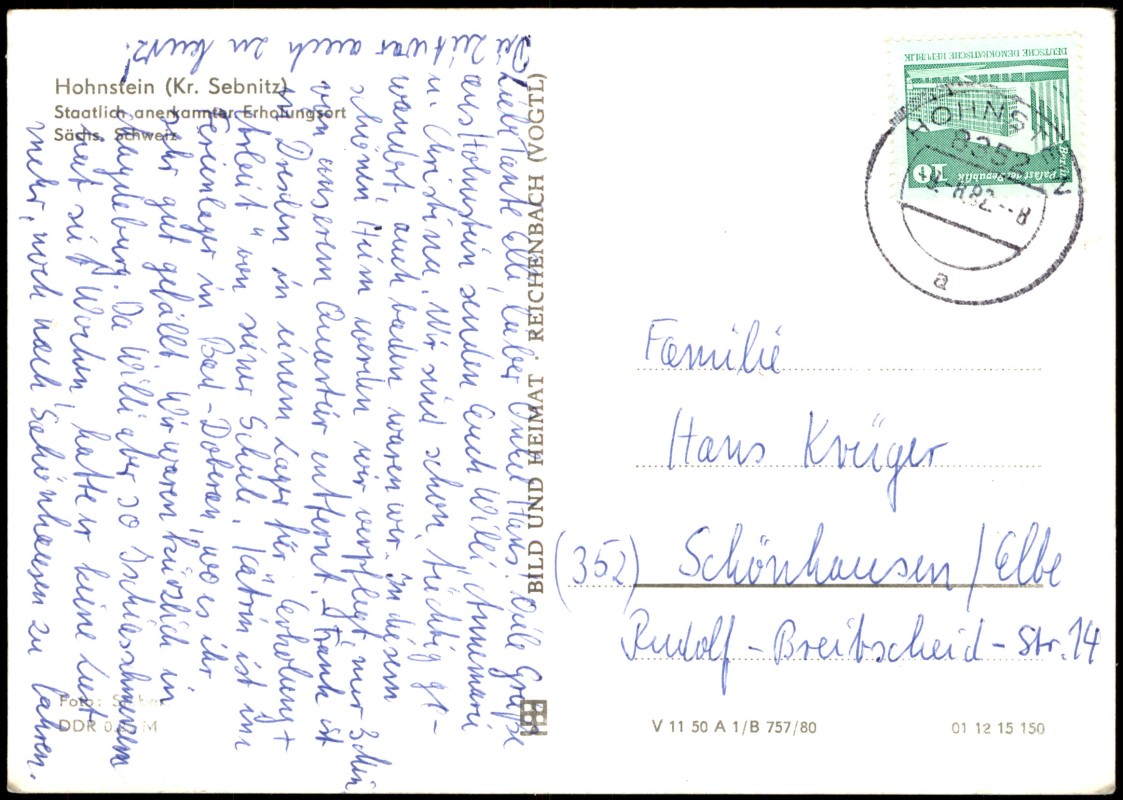 Hohnstein (Kr. Sebnitz)
Staatlich anerkannter Erholungsort
Sächs. Schweiz
Liebe Tante Elli, lieber Onkel Hans! Viele Grüße
aus Hohnstein senden Euch Willi, Annemarie
u. Christine. Wir sind schon tüchtig ge-
wandert, auch baden waren wir. In diesem
schönen Heim werden wir verpflegt, nur 3 Min.
von unserem Quartier entfernt. Frank ist
in Dresden in einem Lager für "Erholung +
Arbeit" von seiner Schule. Katrin ist im
Ferienlager in Bad-Doberan, wo es ihr
sehr gut gefällt. Wir waren kürzlich in
Magdeburg. Da Willi aber so Ischiasschmerzen
seit Wochen hatte, hatte er keine Lust
mehr, noch nach Schönhausen zu fahren.
Die Zeit war auch zu kurz!
Foto:
DDR M
BILD UND HEIMAT · REICHENBACH (VOGTL)
DEUTSCHE DEMOKRATISCHE REPUBLIK
Palast der Republik
Berlin
10
HOHNSTEIN
8352
82.--8
a
Familie
Hans Krüger
(352) Schönhausen/Elbe
Rudolf-Breitscheid-Str. 14
V 11 50 A 1/B 757/80
01 12 15 150